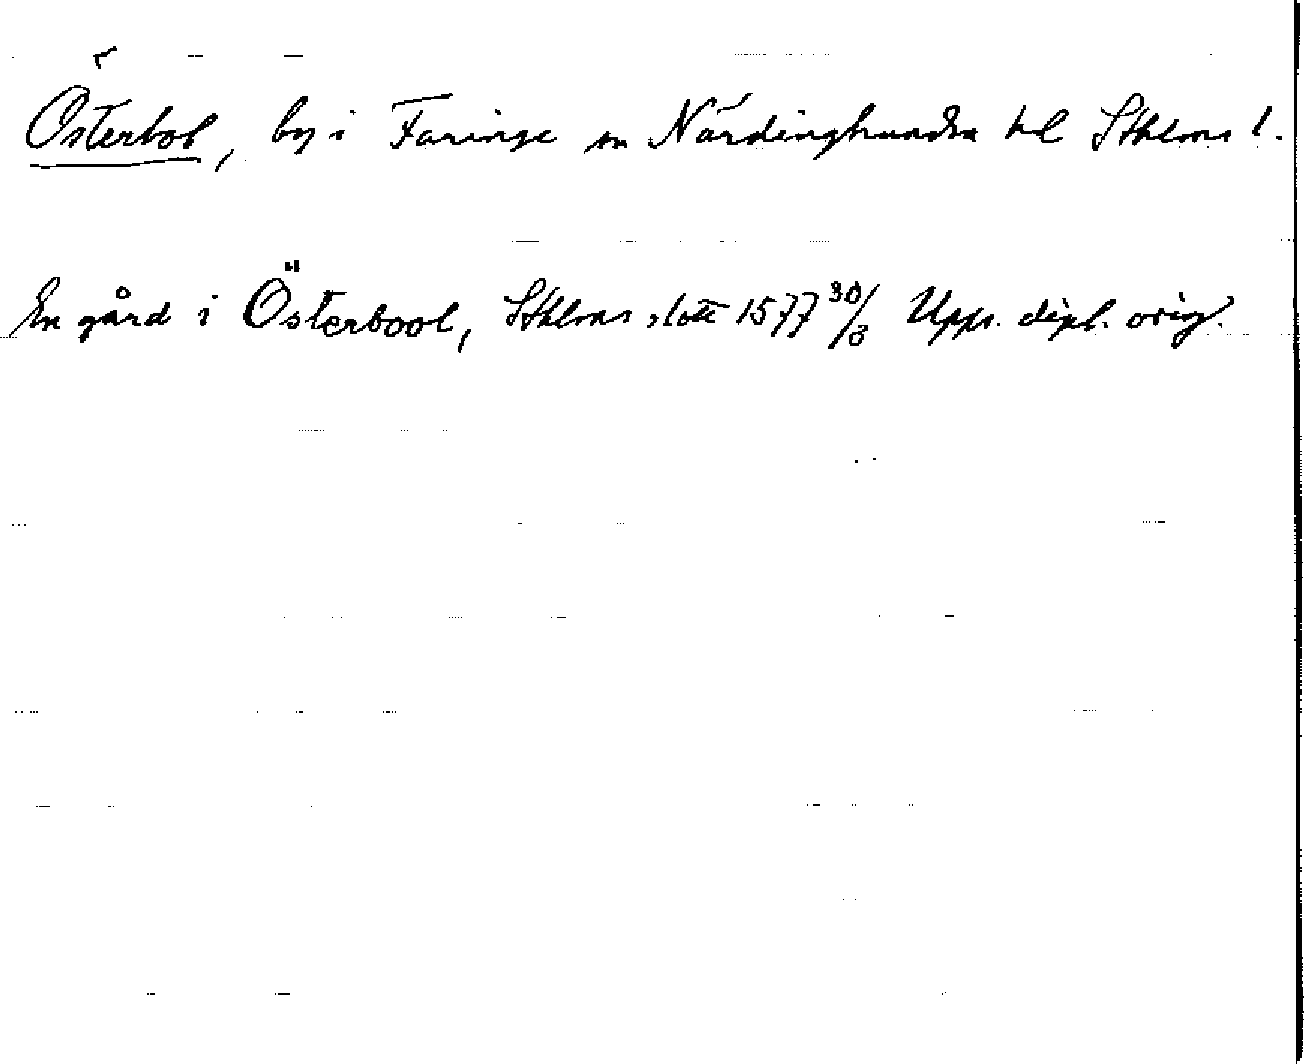 Österbol, by i Faringe sn Närdinghundra hd Sthlms l.
En gård i Österbool, Sthlms slott 1577 30/3 Upps. dipl. orig.